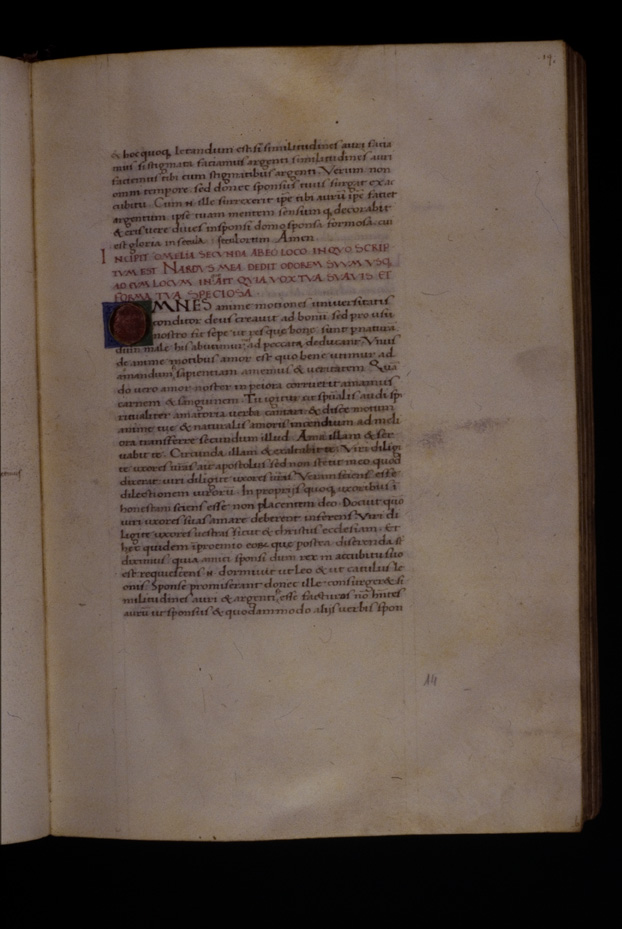 19.
& hoc quoq, letandum est si similitudines auri facia
mus si stigmata faciamus argenti similitudines auri
faciemus tibi cum stigmatibus argenti. Verum non
omni tempore sed donec sponsus tuus surgat ex ac
cubitu. Cum .n. ille surrexerit ipe tibi auru ipe faciet
argentum ipse tuam mentem sensumq, decorabit
& eris vere dives in sponsi domo sponsa formosa cui
est gloria in secula seculorum. Amen.
INCIPIT OMELIA SECVNDA AB EO LOCO IN QVO SCRIP
TVM EST NARDVS MEA DEDIT ODOREM SVVM VSQ,
AD EVM LOCVM IN QVO AIT QVIA VOX TVA SVAVIS ET
FORMA TVA SPECIOSA.
OMNES anime motiones universitatis
conditor deus creavit ad bonu sed pro usu
nostro fit sepe ut res que bone sunt p natura
dum male his abutimur, ad peccata deducant. Vnus
de anime motibus amor est quo bene utimur ad
amandum, sapientiam amemus & veritatem. Qua
do vero amor noster in peiora corruerit amamus
carnem & sanguinem. Tu igitur ut spualis audi spi
ritualiter amatoria verba cantari & disce motum
anime tue & naturalis amoris incendium ad meli
ora transferre secundum illud. Ama illam & ser
vabit te. Circunda illam & exaltabit te. Viri diligi
te uxores vras ait apostolus sed non stetit in eo quod
dixerat viri diligite uxores vras. Verum sciens esse
dilectionem virorum In proprijs quoq, uxoribus i
honestam sciens esse non placentem deo. Docuit quo
viri uxores suas amare deberent inferens. Viri di
ligite uxores vestras sicut & christus ecclesiam. Et
hec quidem in proemio eorum que postea disserenda st
diximus quia amici sponsi dum rex in accubitu suo
est requiescens .n. dormivit ut leo & ut catulus le
onis. Sponse promiserant donec ille consurgeret si
militudines auri & argenti, esse facturos no hntes
auru ut sponsus & quodammodo alijs verbis spon
14